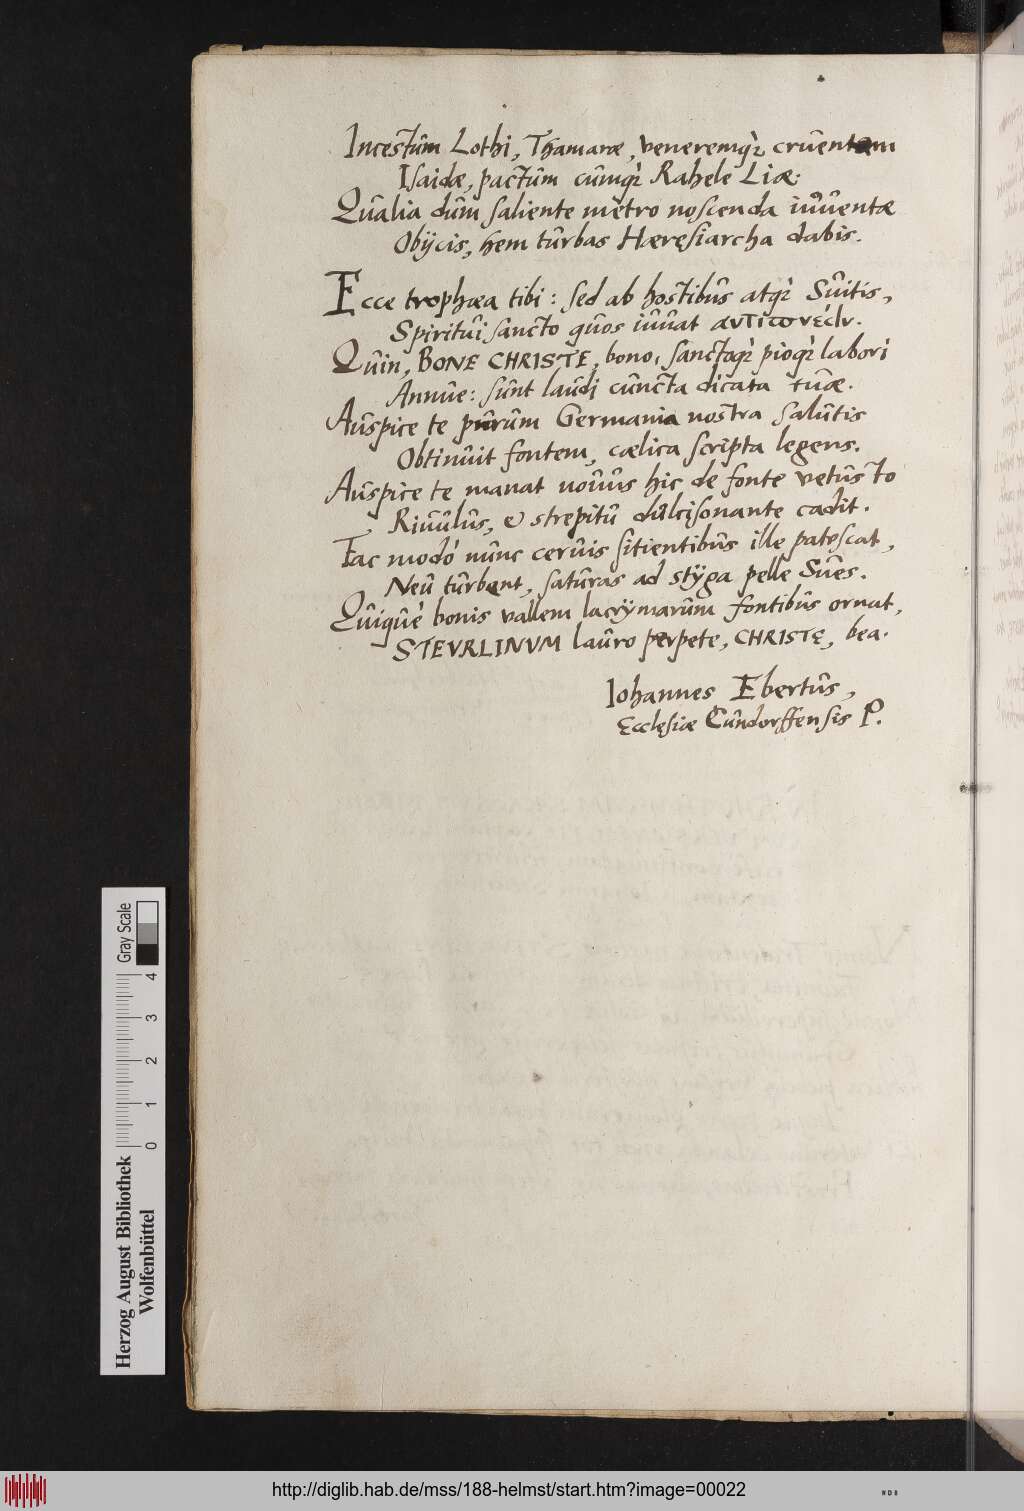 Incestum Lothi, Thamaræ, veneremq́; cruentam
Isaidæ, pactum cumq́; Rahele Liæ:
Qualia dum saliente metro noscenda iuuentæ
Obijcis, hem turbas Hæręsiarcha dabis.
Ecce trophæa tibi: sed ab hostibus atq́; Suitis,
Spiritui sancto quos iuuat
Quin, BONE CHRISTE, bono, sanctoq́; pioq́; labori
Annue: sunt laudi cuncta dicata tuæ.
Auspice te purum Germania nostra salutis
Obtinuit fontem, cælica scripta legens.
Auspice te manat nouus hic de fonte vetusto
Riuulus, & strepitu dulcisonante cadit.
Fac modó nunc ceruis sitientibus ille patescat,
Neu turbent, saturas ad styga pelle Sues.
Quiqué bonis vallem lacrymarum fontibus ornat,
STEVRLINVM lauro perpete, CHRISTE, bea.
Iohannes Ebertus,
Ecclęsiæ Cundorffensis P.
Gray Scale
0 1 2 3 4
Herzog August Bibliothek
Wolfenbüttel
http://diglib.hab.de/mss/188-helmst/start.htm?image=00022